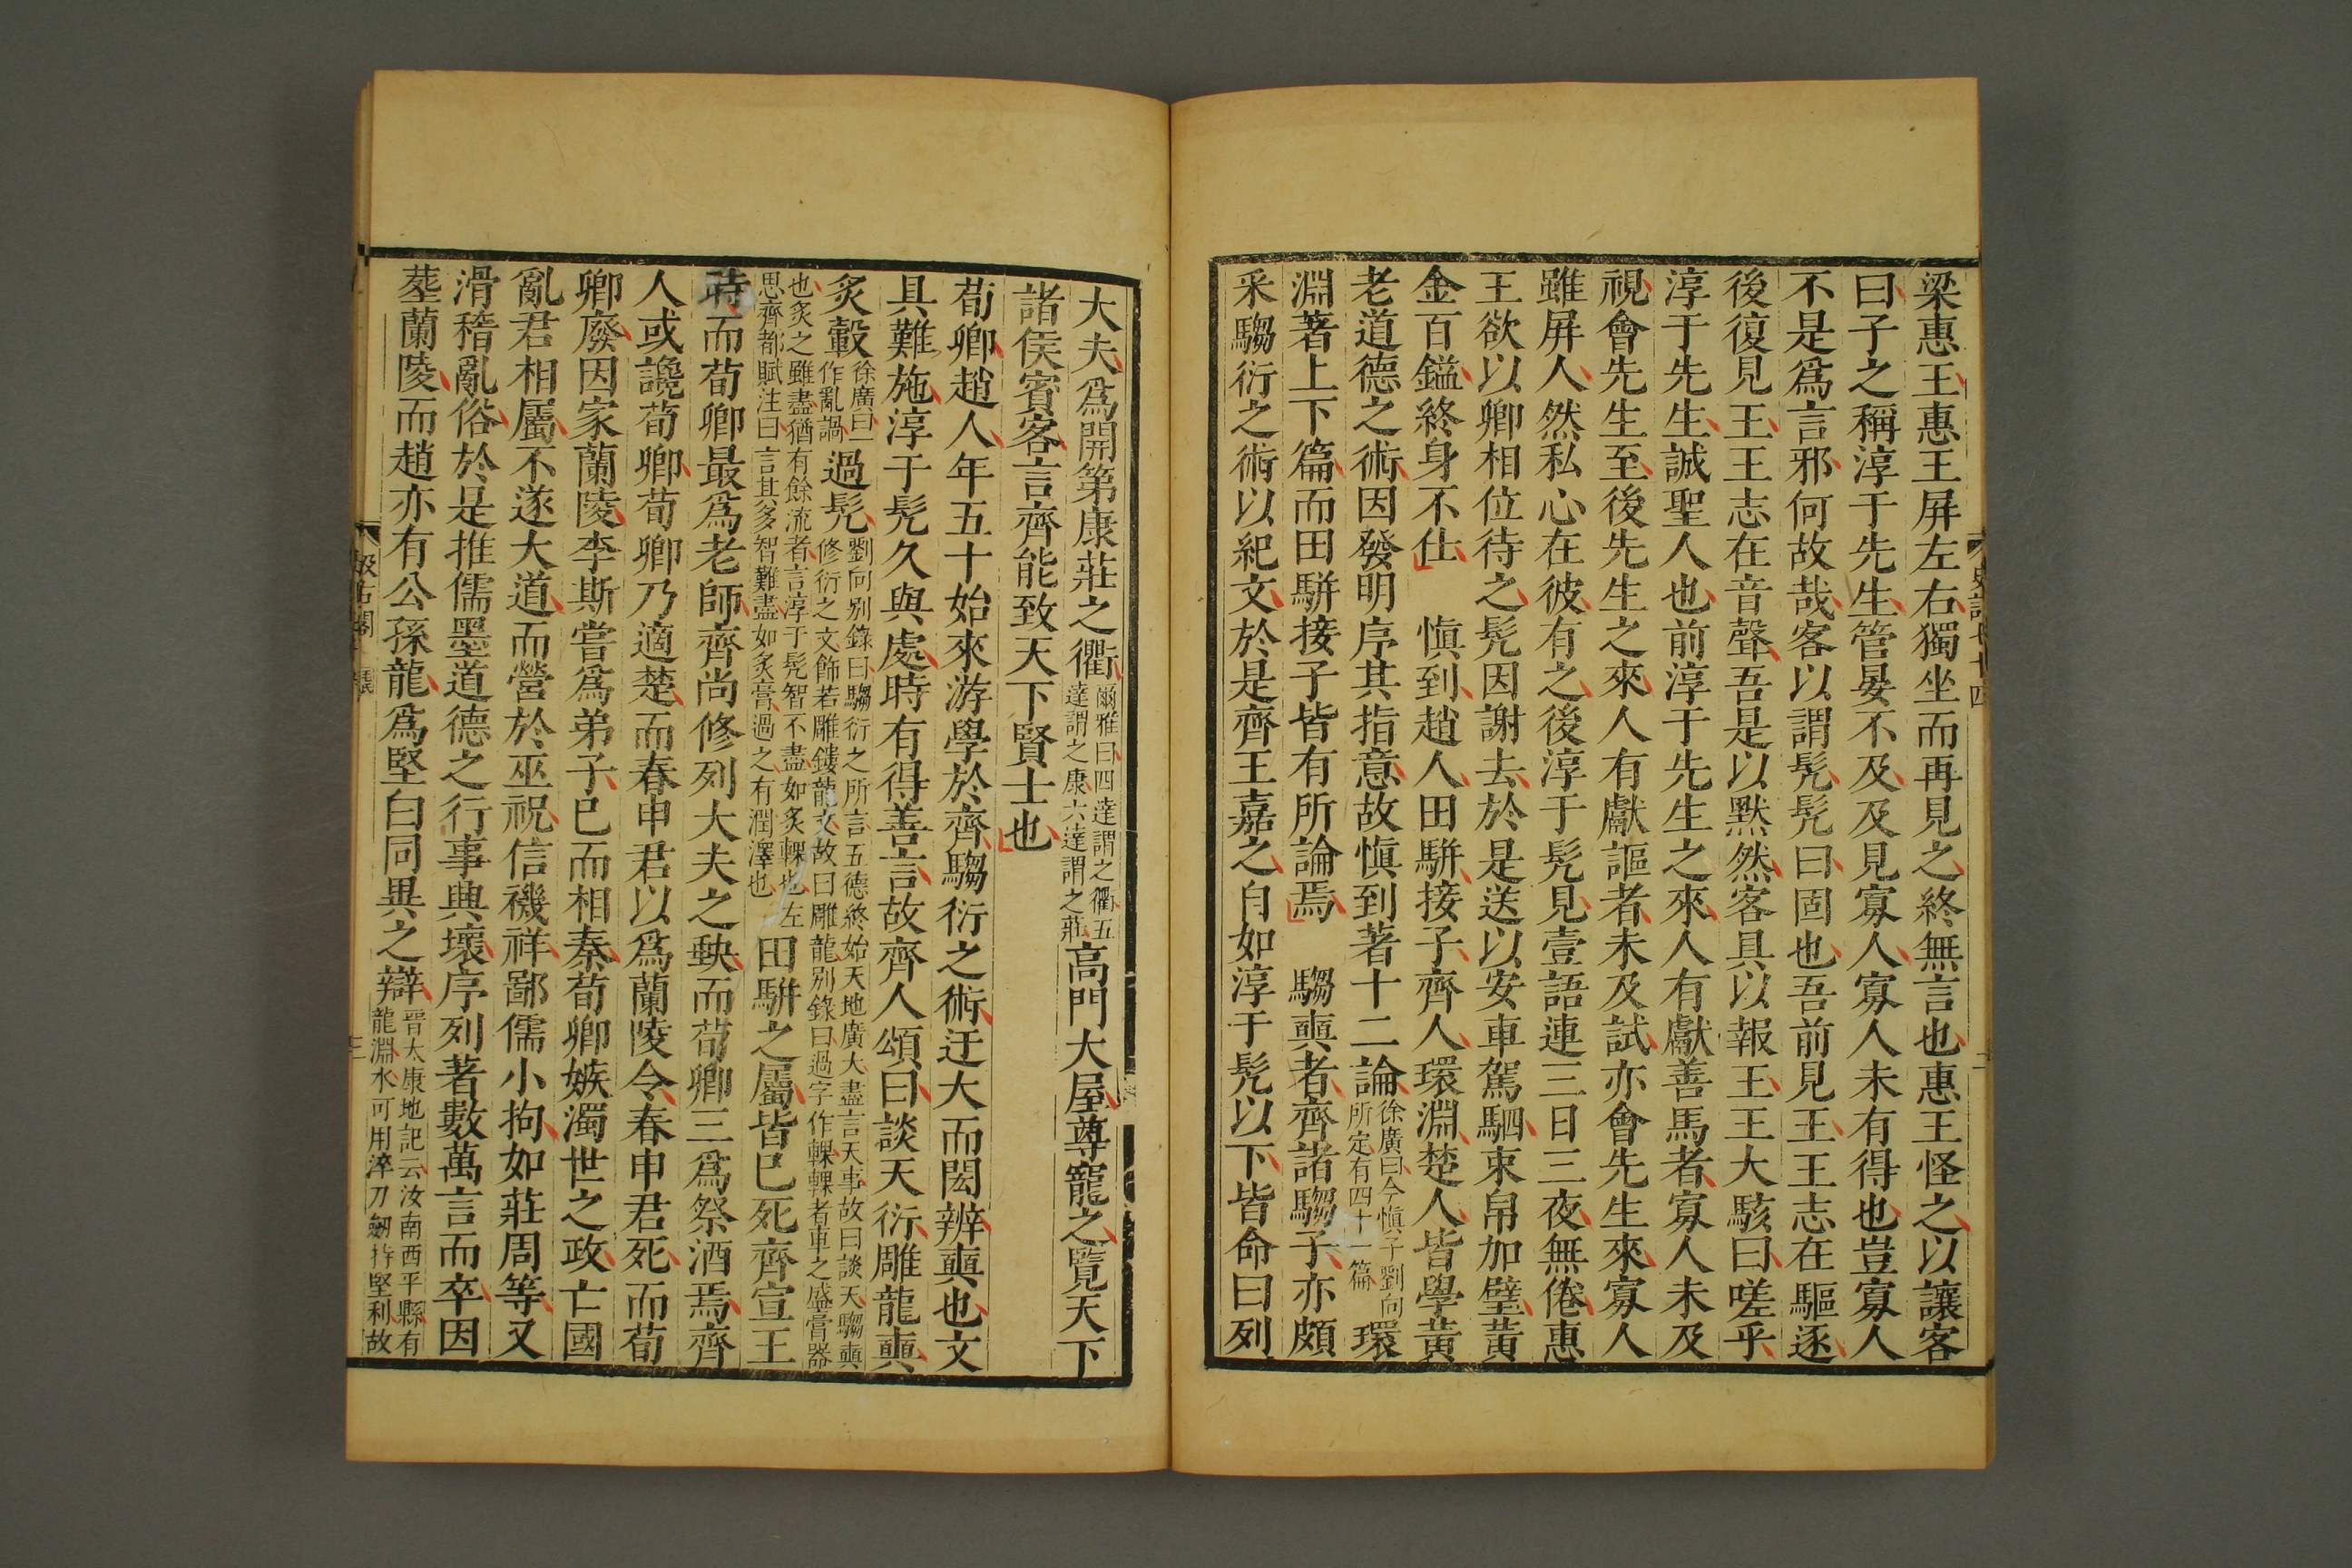 梁惠王惠王屏左右獨坐而再見之終無言也惠王怪之以讓客
曰子之稱淳于先生管晏不及及見寡人寡人未有得也豈寡人
不是爲言邪何故哉客以謂髡髡曰固也吾前見王王志在驅逐
後復見王王志在音聲吾是以默然客具以報王王大駭曰嗟乎
淳于先生誠聖人也前淳于先生之來人有獻善馬者寡人未及
視會先生至後先生之來人有獻謳者未及試亦會先生來寡人
雖屏人然私心在彼有之後淳于髡見壹語連三日三夜無倦惠
王欲以卿相位待之髡因謝去於是送以安車駕駟束帛加璧黄
金百鎰終身不仕　慎到趙人田駢接子齊人環淵楚人皆學黄
老道德之術因發明序其指意故慎到著十二論徐廣曰今慎子劉向所定有四十一篇環
淵著上下篇而田駢接子皆有所論焉　騶奭者齊諸騶子亦頗
采騶衍之術以紀文於是齊王嘉之自如淳于髡以下皆命曰列
大夫爲開第康莊之衢爾雅曰四達謂之衢五達謂之康六達謂之莊高門大屋尊寵之覽天下
諸侯賓客言齊能致天下賢士也
荀卿趙人年五十始來游學於齊騶衍之術迂大而閎辨奭也文
具難施淳于髡久與處時有得善言故齊人頌曰談天衍雕龍奭
炙轂徐廣曰一作亂調過髡劉向别錄曰騶衍之所言五德終始天地廣大盡言天事故曰談天騶奭修衍之文飾若雕鏤龍文故曰雕龍别錄曰過字作輠輠者車之盛膏器
也炙之雖盡猶有餘流者言淳于髡智不盡如炙輠也左思齊都賦注曰言其多智難盡如炙膏過之有潤澤也田駢之屬皆已死齊宣王
時而荀卿最爲老師齊尚修列大夫之缺而荀卿三爲祭酒焉齊
人或讒荀卿荀卿乃適楚而春申君以爲蘭陵令春申君死而荀
卿廢因家蘭陵李斯嘗爲弟子已而相秦荀卿嫉濁世之政亡國
亂君相屬不遂大道而營於巫祝信禨祥鄙儒小拘如莊周等又
滑稽亂俗於是推儒墨道德之行事興壞序列著數萬言而卒因
葬蘭陵而趙亦有公孫龍爲堅白同異之辯晋太康地記云汝南西平縣有龍淵水可用淬刀劒特堅利故